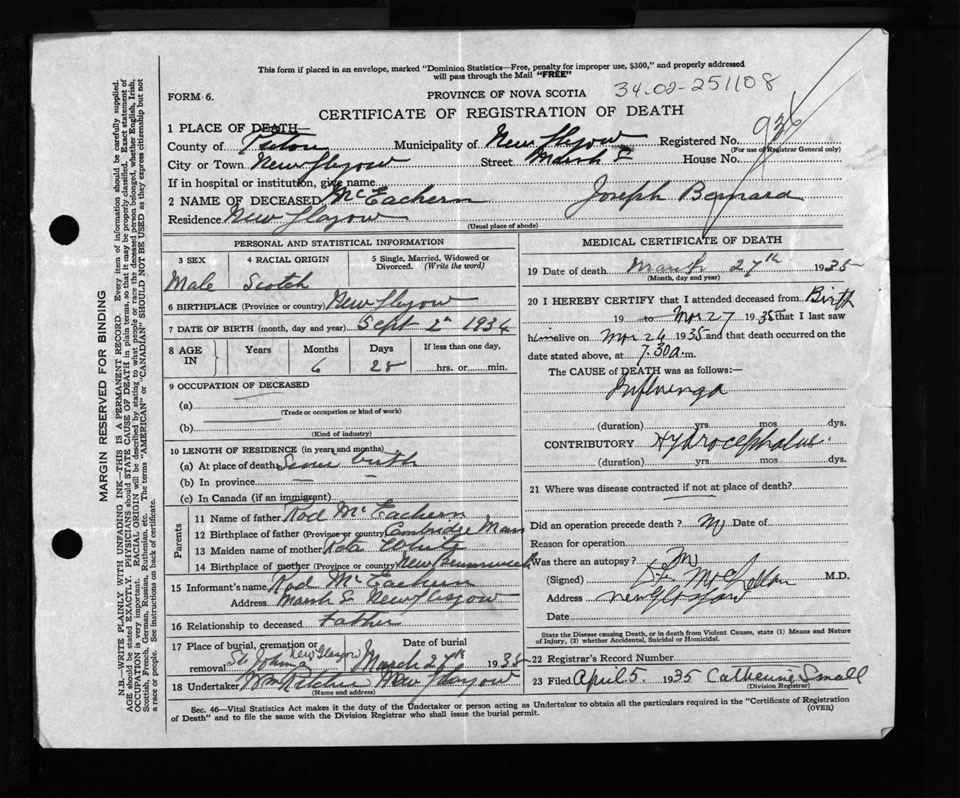 This form if placed in an envelope, marked "Dominion Statistics—Free, penalty for improper use, $300," and properly addressed
will pass through the Mail "FREE"
34-02-251108
FORM 6.
PROVINCE OF NOVA SCOTIA
CERTIFICATE OF REGISTRATION OF DEATH
936
1 PLACE OF DEATH—
County of Pictou Municipality of New Glasgow Registered No.
(For use of Registrar General only)
City or Town New Glasgow Street Marsh House No.
If in hospital or institution, give name
2 NAME OF DECEASED McEachern Joseph Bernard
Residence New Glasgow
(Usual place of abode)
PERSONAL AND STATISTICAL INFORMATION
3 SEX 4 RACIAL ORIGIN 5 Single, Married, Widowed or Divorced. (Write the word)
Male Scotch
6 BIRTHPLACE (Province or country) New Glasgow
7 DATE OF BIRTH (month, day and year) Sept 2 1934
8 AGE IN Years Months Days If less than one day,
6 28 hrs. or min.
9 OCCUPATION OF DECEASED
(a)
(Trade or occupation or kind of work)
(b)
(Kind of industry)
10 LENGTH OF RESIDENCE (in years and months)
(a) At place of death Since birth
(b) In province
(c) In Canada (if an immigrant)
Parents
11 Name of father Rod McEachern
12 Birthplace of father (Province or country) Cambridge Mass
13 Maiden name of mother White
14 Birthplace of mother (Province or country) New Brunswick
15 Informant's name Rod McEachern
Address Marsh S New Glasgow
16 Relationship to deceased Father
17 Place of burial, cremation or removal Date of burial
St Johns New Glasgow March 27th 1935
18 Undertaker New Glasgow
(Name and address)
MEDICAL CERTIFICATE OF DEATH
19 Date of death March 27th 1935
(Month, day and year)
20 I HEREBY CERTIFY that I attended deceased from Birth
19 to Mar 27 1935 that I last saw
him alive on Mar 26 1935 and that death occurred on
date stated above, at 7.30 a.m.
The CAUSE of DEATH was as follows:—
Influenza
(duration) yrs mos dys.
CONTRIBUTORY Hydrocephalus.
(duration) yrs mos dys.
21 Where was disease contracted if not at place of death?
Did an operation precede death? No Date of
Reason for operation
Was there an autopsy? No
(Signed) M.D.
Address New Glasgow
Date
State the Disease causing Death, or in death from Violent Causes, state (1) Means and Nature
of Injury, (2) whether Accidental, Suicidal or Homicidal.
22 Registrar's Record Number
23 Filed April 5. 1935 Catherine Small
(Division Registrar)
Sec. 46—Vital Statistics Act makes it the duty of the Undertaker or person acting as Undertaker to obtain all the particulars required in the "Certificate of Registration
of Death" and to file the same with the Division Registrar who shall issue the burial permit.
(OVER)
MARGIN RESERVED FOR BINDING
N.B.—WRITE PLAINLY WITH UNFADING INK—THIS IS A PERMANENT RECORD. Every item of information should be carefully supplied.
AGE should be stated EXACTLY. PHYSICIANS should STATE CAUSE OF DEATH in plain terms, so that it may be properly classified. Exact statement of
OCCUPATION is very important. RACIAL ORIGIN will be described by stating to what people or race the deceased person belonged, whether English, Irish,
Scottish, French, German, Russian, Ruthenian, etc. The terms "AMERICAN" or "CANADIAN" SHOULD NOT BE USED as they express citizenship but not
a race or people. See instructions on back of certificate.